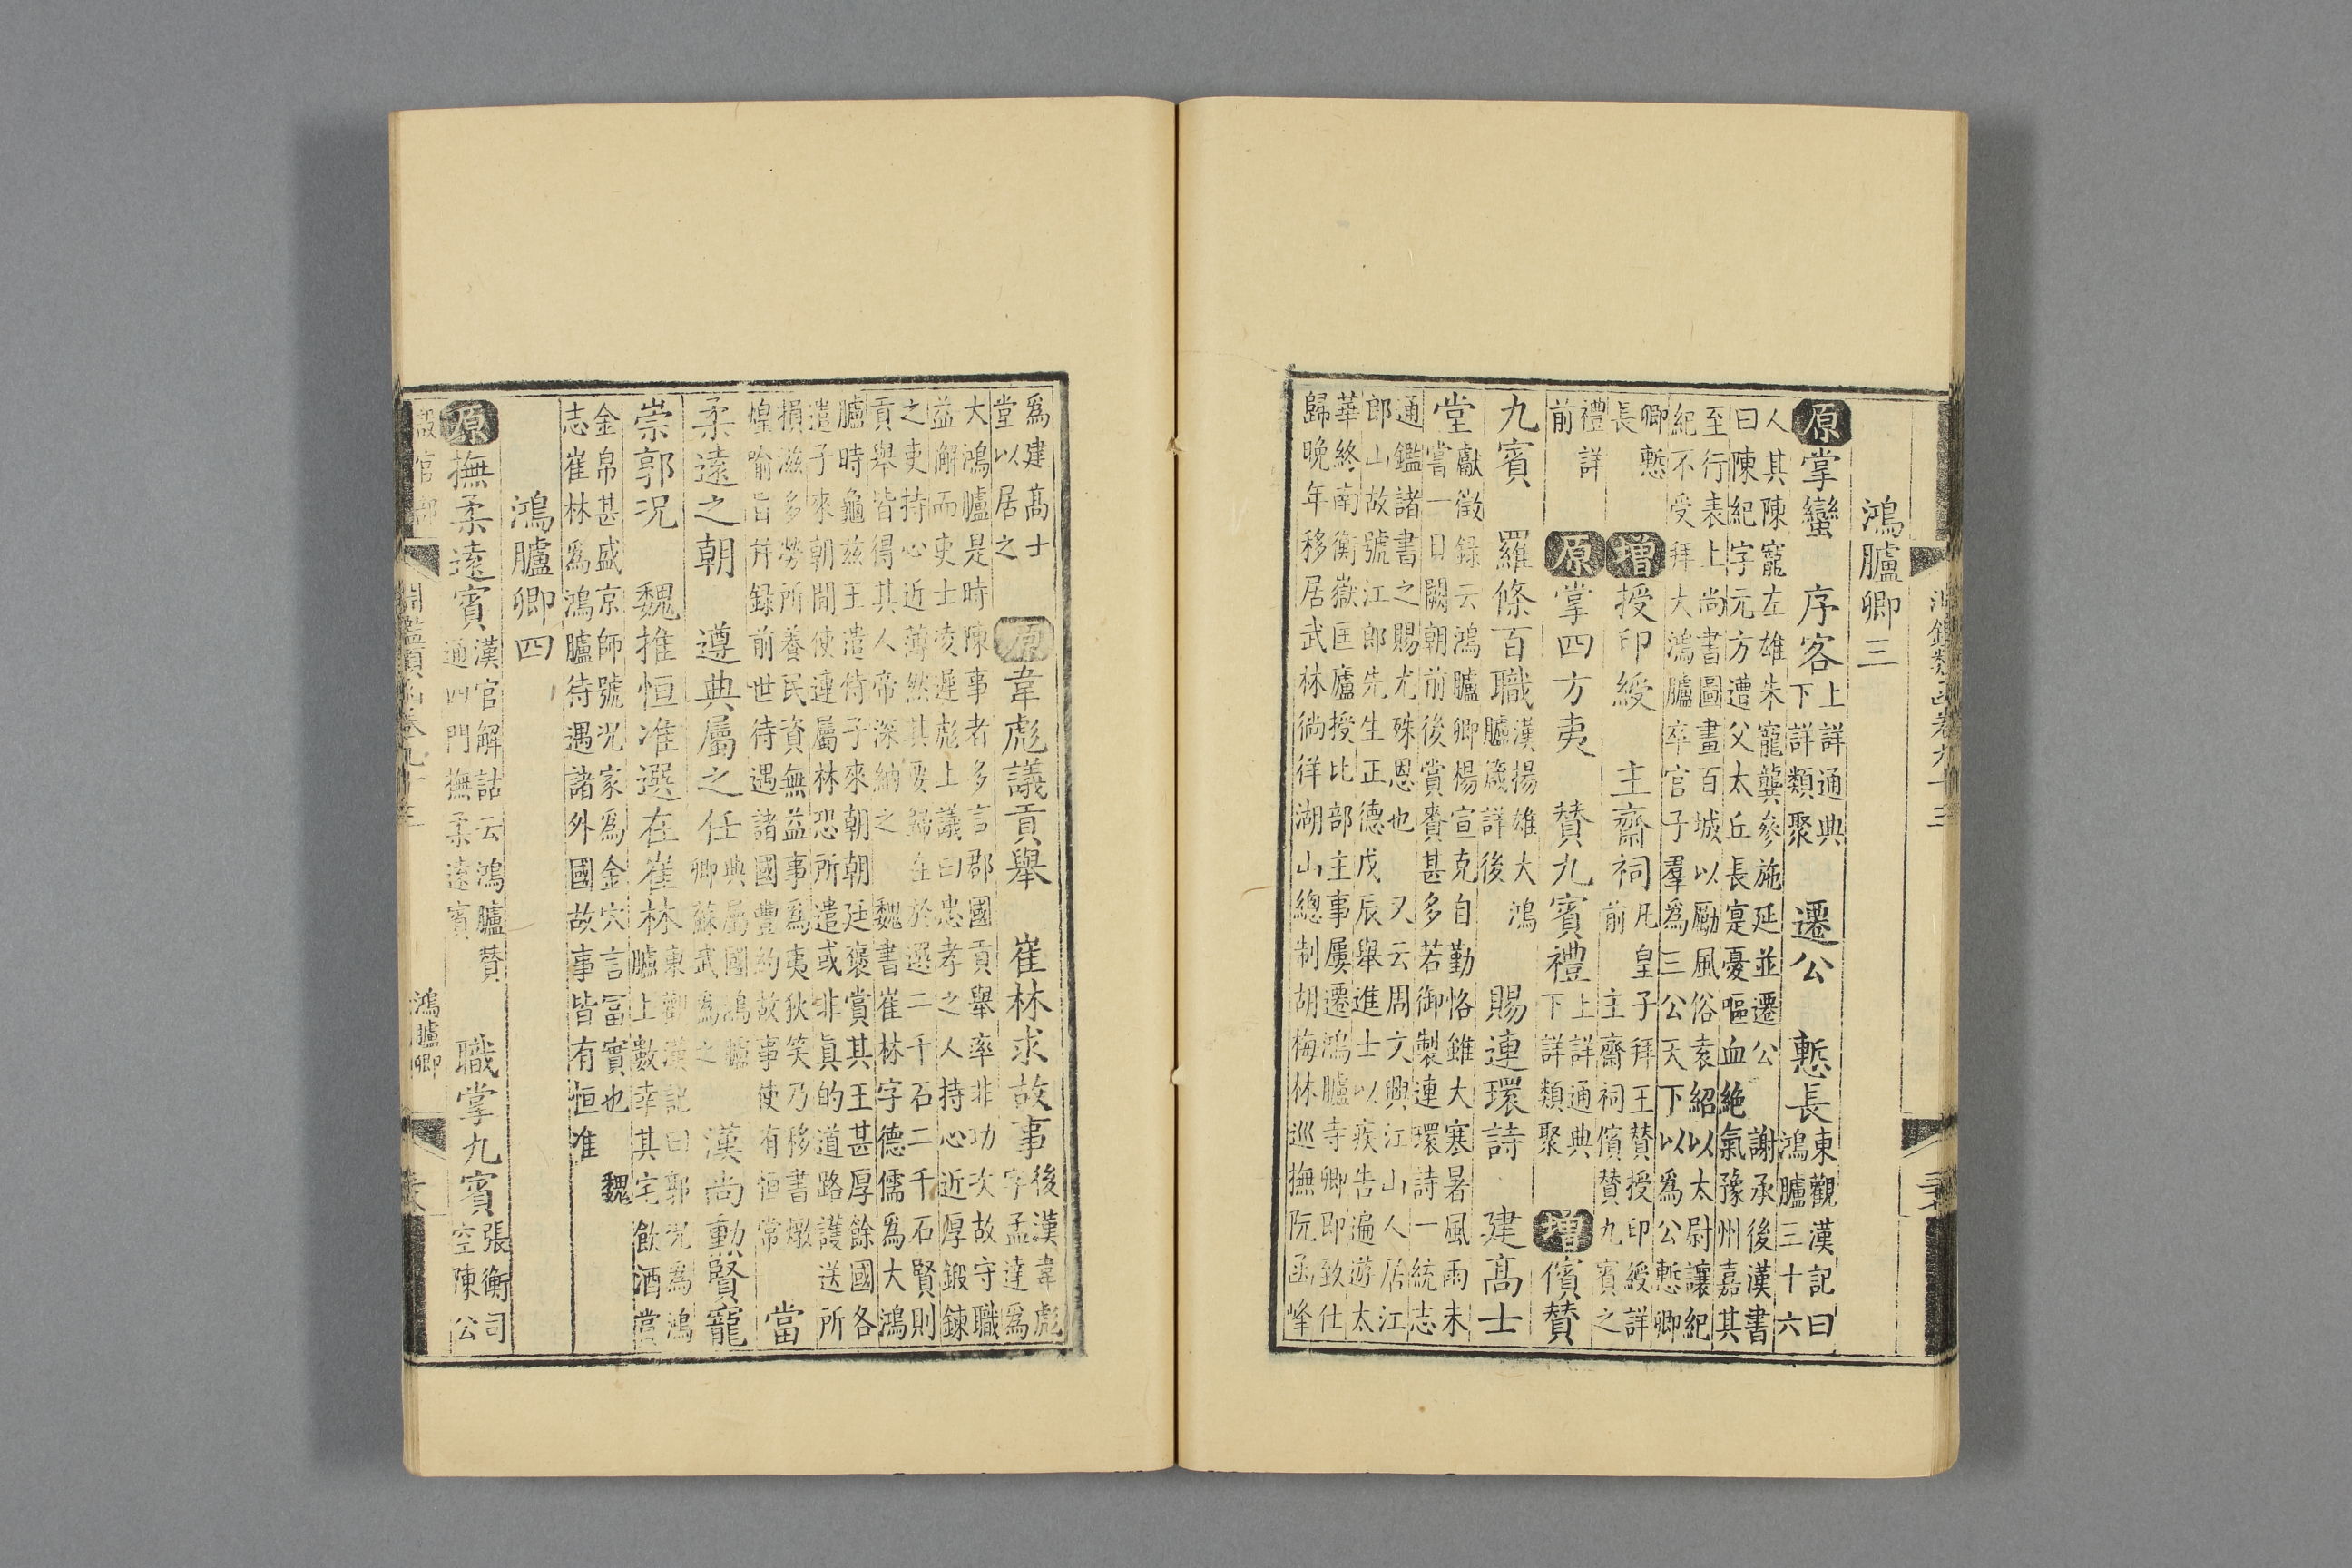 鴻臚卿三
原掌蠻 序客上詳通典下詳類聚 遷公 慙長東觀漢記曰鴻臚三十六
人其陳寵左雄朱寵龔參施延並遷公 謝承後漢書曰陳紀字元方遭父太丘長寔憂嘔血絶氣豫州嘉其
至行表上尚書圖畫百城以勵風俗袁紹以太尉讓紀紀不受拜大鴻臚卒官子羣為三公天下以為公慙卿
卿慙長 增授印綬 主齋祠凡皇子拜王贊授印綬詳前 主齋祠儐贊九賓之
禮詳前 原掌四方夷 贊九賓禮上詳通典下詳類聚 增儐贊
九賓 羅條百職漢揚雄大鴻臚箴詳後 賜連環詩 建高士
堂獻徵録云鴻臚卿楊宣克自勤恪雖大寒暑風雨未嘗一日闕朝前後賞賚甚多若御製連環詩一統志
通鑑諸書之賜尤殊恩也 又云周文興江山人居江郎山故號江郎先生正德戊辰舉進士以疾告遍遊太
華終南衡嶽匡廬授比部主事屢遷鴻臚寺卿即致仕歸晚年移居武林徜徉湖山總制胡梅林巡撫阮函峰
為建高士堂以居之 原韋彪議貢舉 崔林求故事後漢韋彪字孟達為
大鴻臚是時陳事者多言郡國貢舉率非功次故守職益懈而吏士凌遲彪上議曰忠孝之人持心近厚鍛鍊
之吏持心近薄然其要歸在於選二千石二千石賢則貢舉皆得其人帝深納之 魏書崔林字德儒為大鴻
臚時龜兹王遣侍子來朝朝廷褒賞其王甚厚餘國各遣子來朝間使連屬林恐所遣或非真的道路護送所
損滋多勞所養民資無益事為夷狄笑乃移書燉煌喻旨并録前世待遇諸國豐約故事使有恒常 當
柔遠之朝 遵典屬之任典屬國鴻臚卿蘇武為之 漢尚勳賢寵
崇郭況 魏推恒准選在崔林東觀漢記曰郭況為鴻臚上數幸其宅飲酒賞
金帛甚盛京師號況家為金穴言冨實也 魏志崔林為鴻臚待遇諸外國故事皆有恒准
鴻臚卿四
原撫柔遠賓漢官解詁云鴻臚贊通四門撫柔遠賓 職掌九賓張衡司空陳公
設官部
鴻臚卿